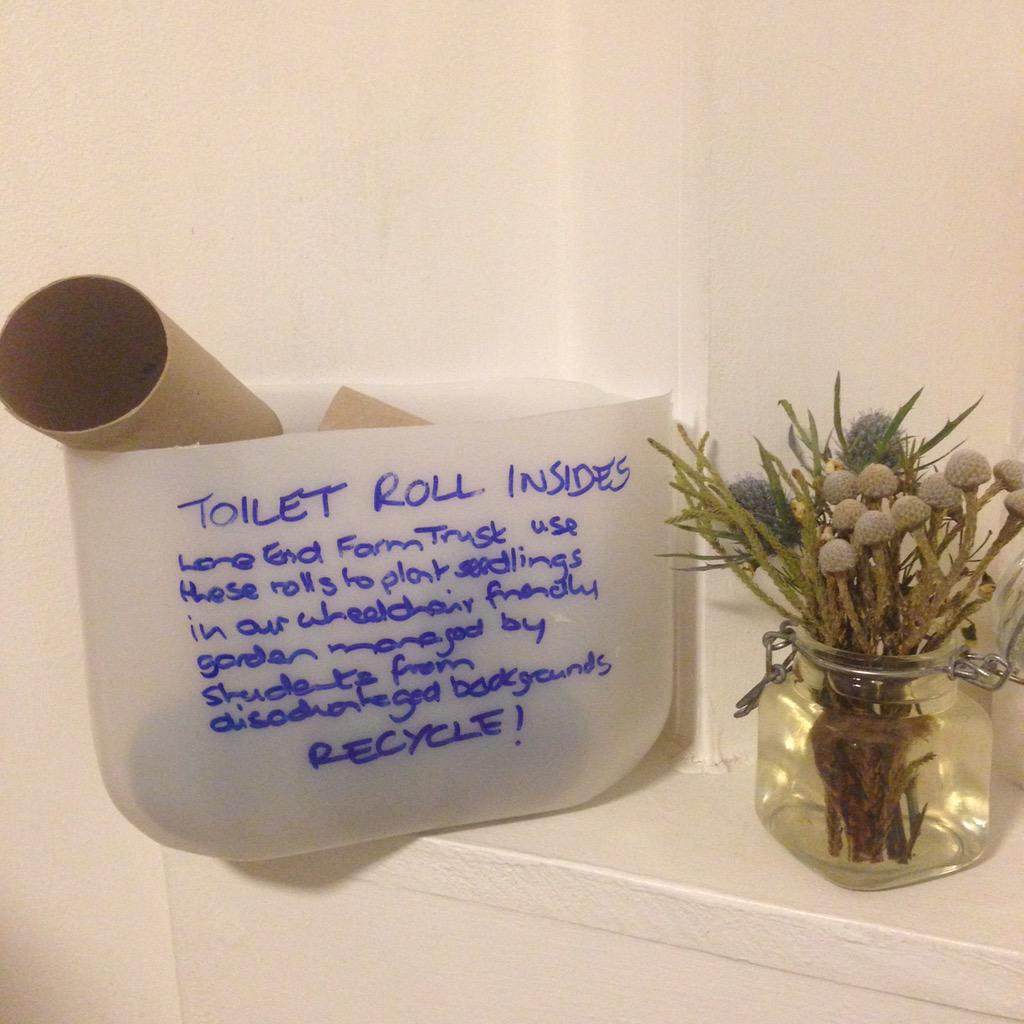 TOILET ROLL INSIDES
Lane End Farm Trust use
these rolls to plant seedlings
in our wheelchair friendly
garden managed by
students from
disadvantaged backgrounds
RECYCLE!